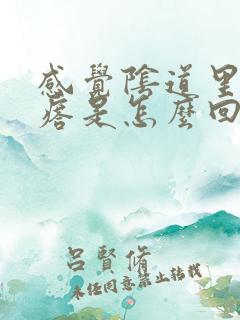 感覺陰道里
痞是怎麼回
呂賢脩
未任同意禁止转载